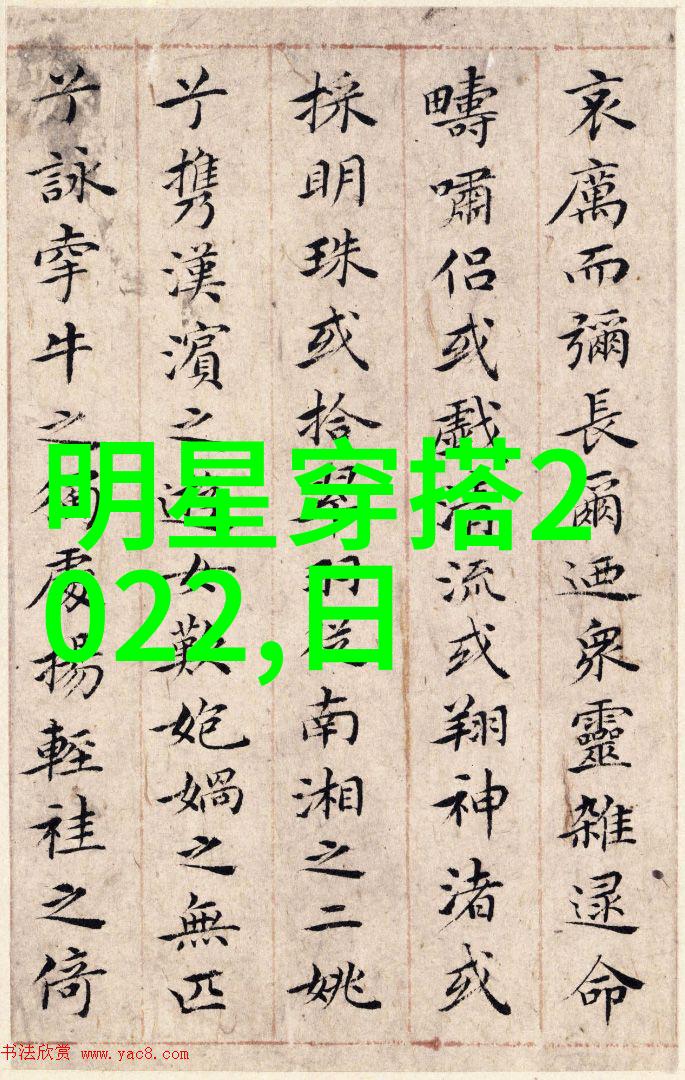 哀厲而彌長爾迺衆靈雜逯命
疇嘯侶或戲清流或翔神渚或
採明珠或拾翠羽從南湘之二姚
兮攜漢濱之遊女歎㚿媧之無匹
兮詠牽牛之獨處揚輕袿之倚
明星穿搭2
022,日
书法欣赏 www.yac8.com